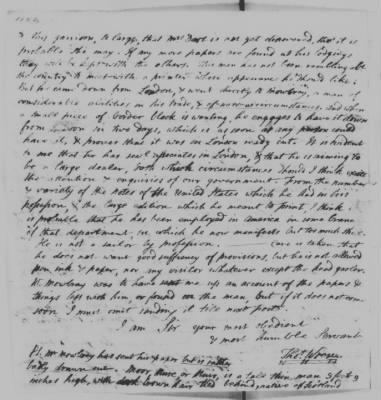 this garrison, to carry, that Mr Dart is not yet discovered, tho' it is
probable he may. If any more papers are found at his lodgings
they will be kept with the others. This man has not been rambling all
the country to meet with a printer whose appearance he should like.
But he came down from London, & went directly to Mowbray, a man of
considerable abilities in his trade, & of circumstances. And when
a small piece of border block is wanting, he engages to have it down
from London in two days, which is as soon as any person could
have it, & proves that it was in London ready cut. It is evident
to me that he has associates in London, & that he is aiming to
be a large dealer, such circumstances should I think excite
the attention & enquiries of our government. From the number
& variety of the notes of the United States which he had in his
possession & the large edition which he meant to print, I think
it probable that he has been employed in America in some branch
of that department, in which he now manifests but too much skill.
He is not a sailor by profession. Care is taken that
he does not want good sufficiency of provisions, but he is not allowed
pen, ink & paper, nor any visitor whatever except the head gaoler.
Mr. Mowbray was to have sent me up an account of the papers &
things left with him, or found on the man, but if it does not come
soon I must omit sending it till next post.
I am Sir your most obedient
& most humble Servant
Thos. Wooren
P.S. Mr Mowbray has sent his paper but is rather
badly drawn out. Moor, Muir, or Muire, is a tall thin man 5 feet 9
inches high, with dark brown hair tied behind, native of Scotland